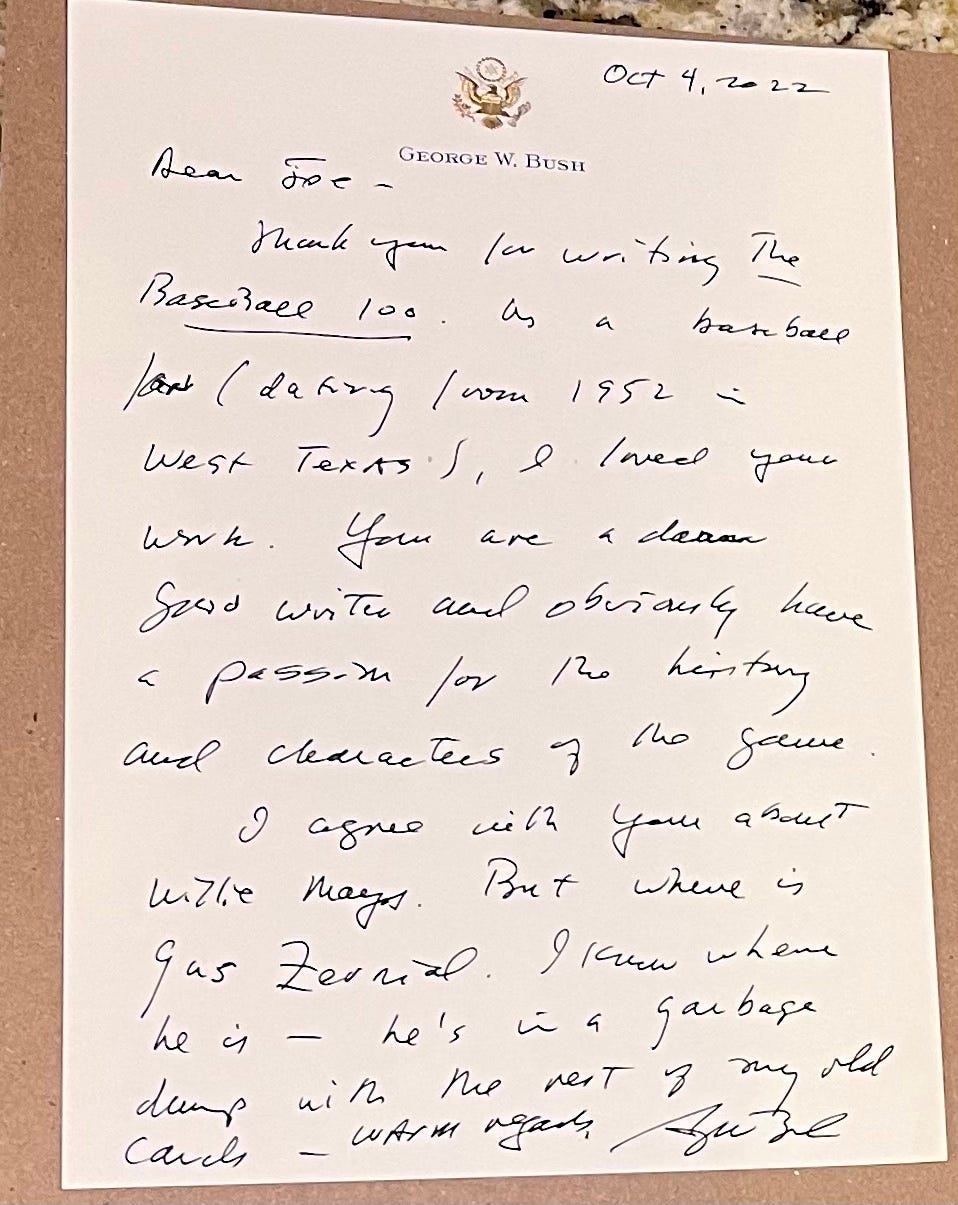 Oct 4, 2022
GEORGE W. BUSH
Dear Joe -
Thank you for writing The
Baseball 100. As a baseball
fan (dating from 1952 in
West Texas), I loved your
work. You are a damn
good writer and obviously have
a passion for the history
and characters of the game.
I agree with you about
Willie Mays. But where is
Gus Zernial. I know where
he is — he's in a garbage
dump with the rest of my old
cards — warm regards,